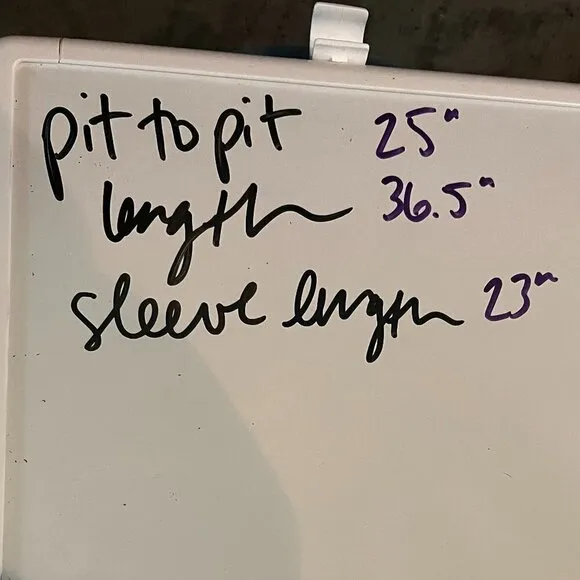 pit to pit 25"
length 36.5"
sleeve length 23"